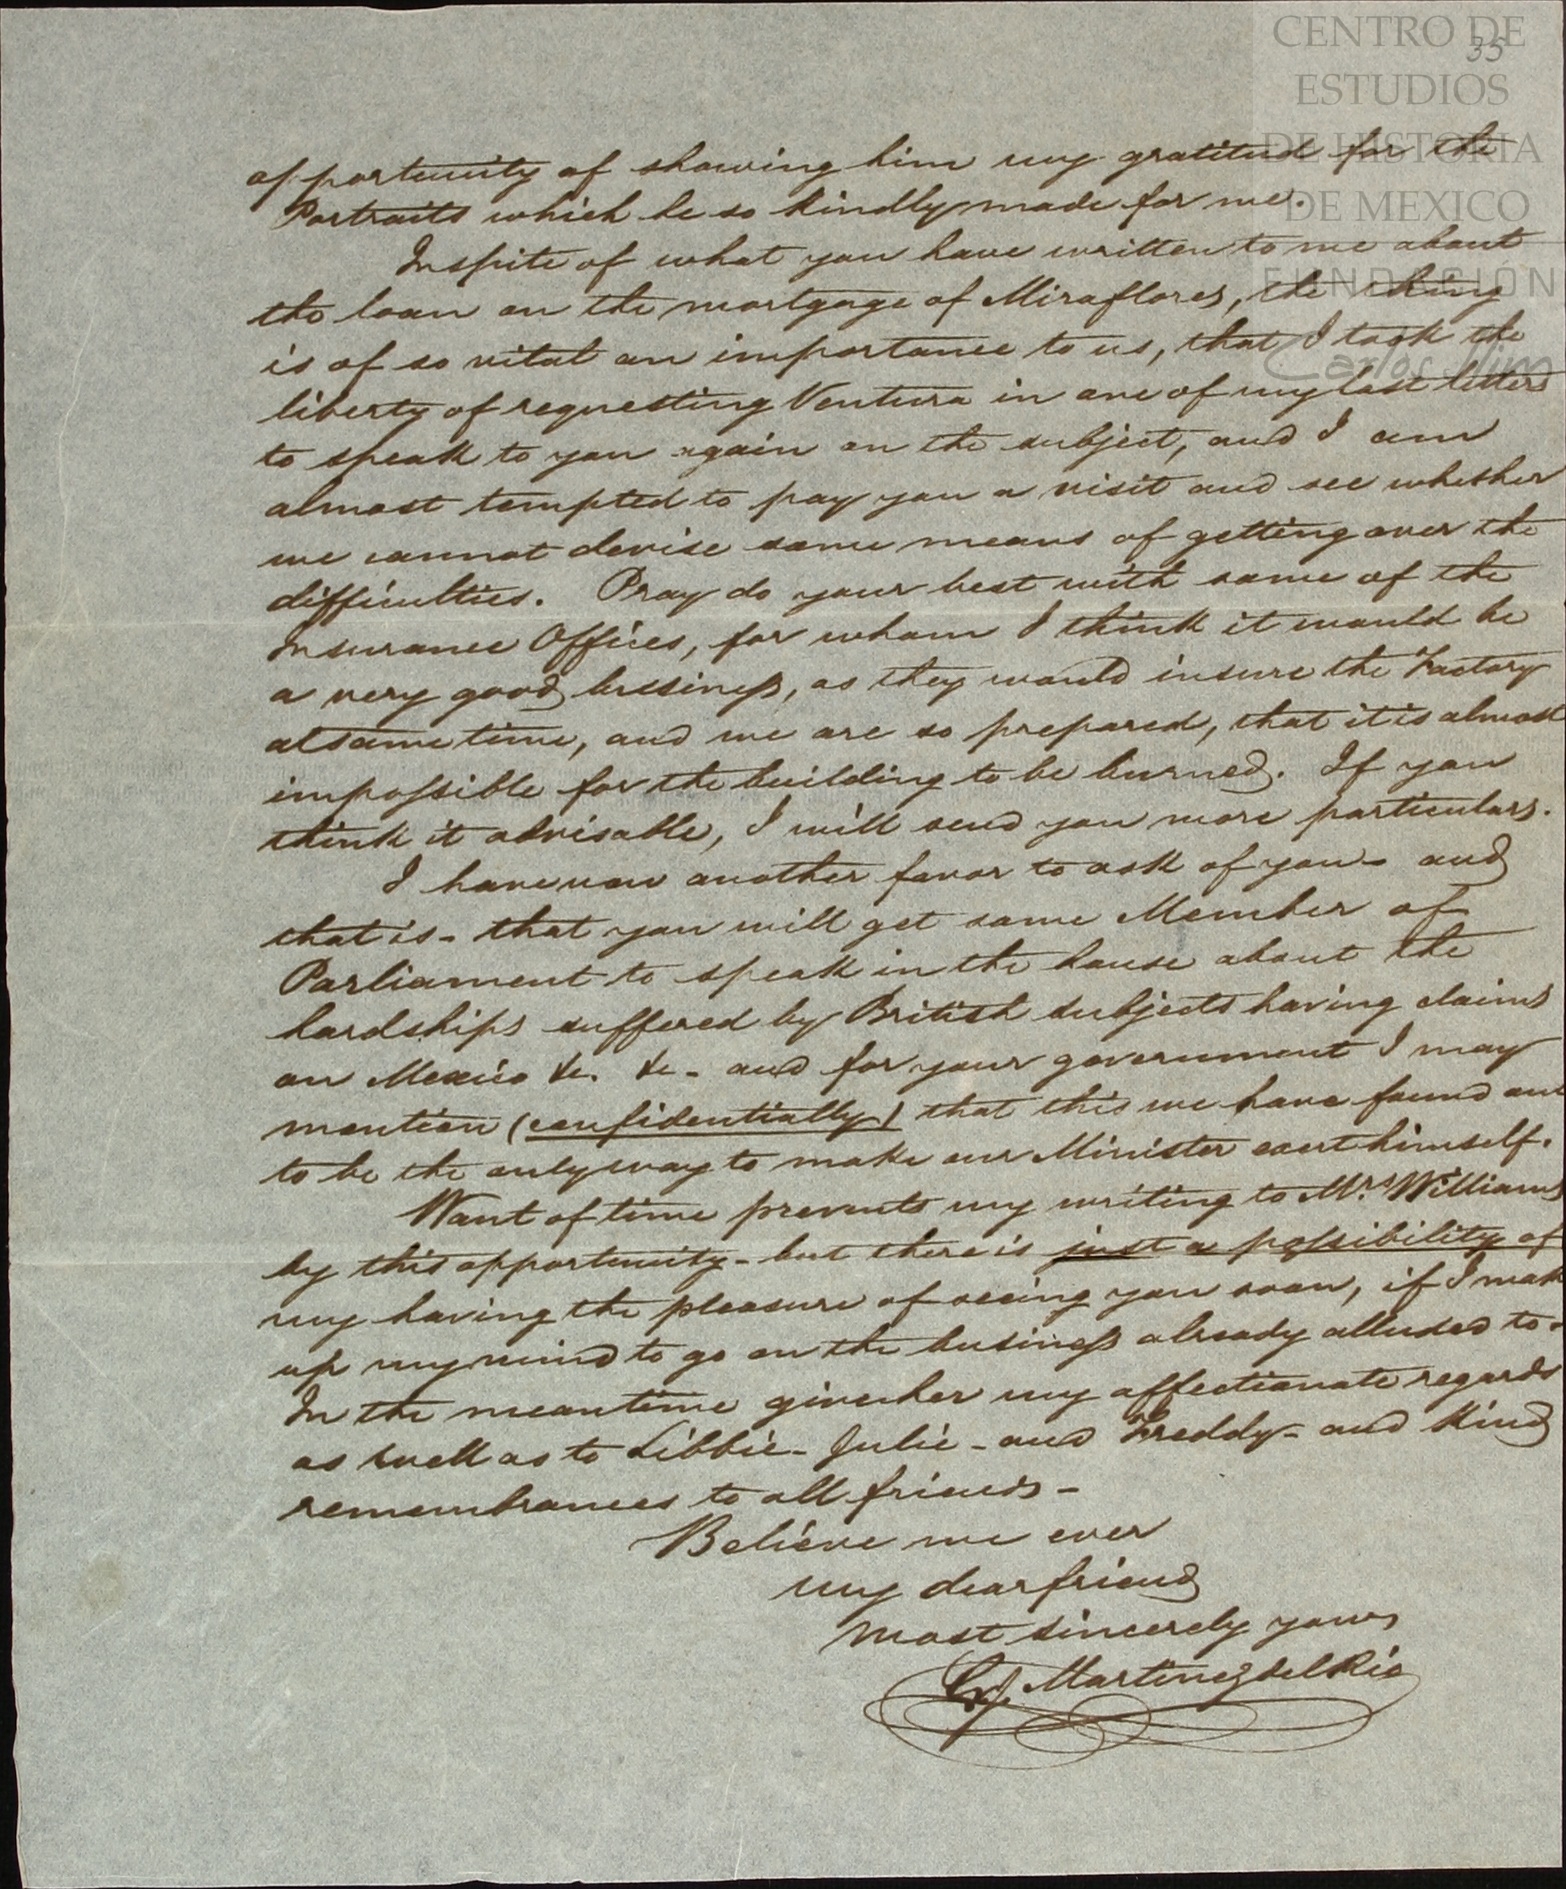 CENTRO DE
35
ESTUDIOS
DE HISTORIA
DE MEXICO
FUNDACIÓN
Carlos Slim
opportunity of showing him my gratitude for the
Portraits which he so kindly made for me.
Inspite of what you have written to me about
the loan on the mortgage of Miraflores, the thing
is of so vital an importance to us, that I took the
liberty of requesting Ventura in one of my last letters
to speak to you again on the subject, and I am
almost tempted to pay you a visit and see whether
we cannot devise some means of getting over the
difficulties. Pray do your best with some of the
Insurance Offices, for whom I think it would be
a very good business, as they would insure the Factory
at same time, and we are so prepared, that it is almost
impossible for the building to be burned. If you
think it advisable, I will send you more particulars.
I have now another favor to ask of you - and
that is - that you will get some Member of
Parliament to speak in the house about the
hardships suffered by British subjects having claims
on Mexico &c. &c - and for your government I may
mention (confidentially) that this we have found out
to be the only way to make our Minister exert himself.
Want of time prevents my writing to Mrs Williams
by this opportunity - but there is just a possibility of
my having the pleasure of seeing you soon, if I make
up my mind to go on the business already alluded to.
In the meantime give her my affectionate regards
as well as to Libbie - Julie - and Freddy - and kind
remembrances to all friends -
Believe me ever
my dear friend
most sincerely yours
Martinez del Rio